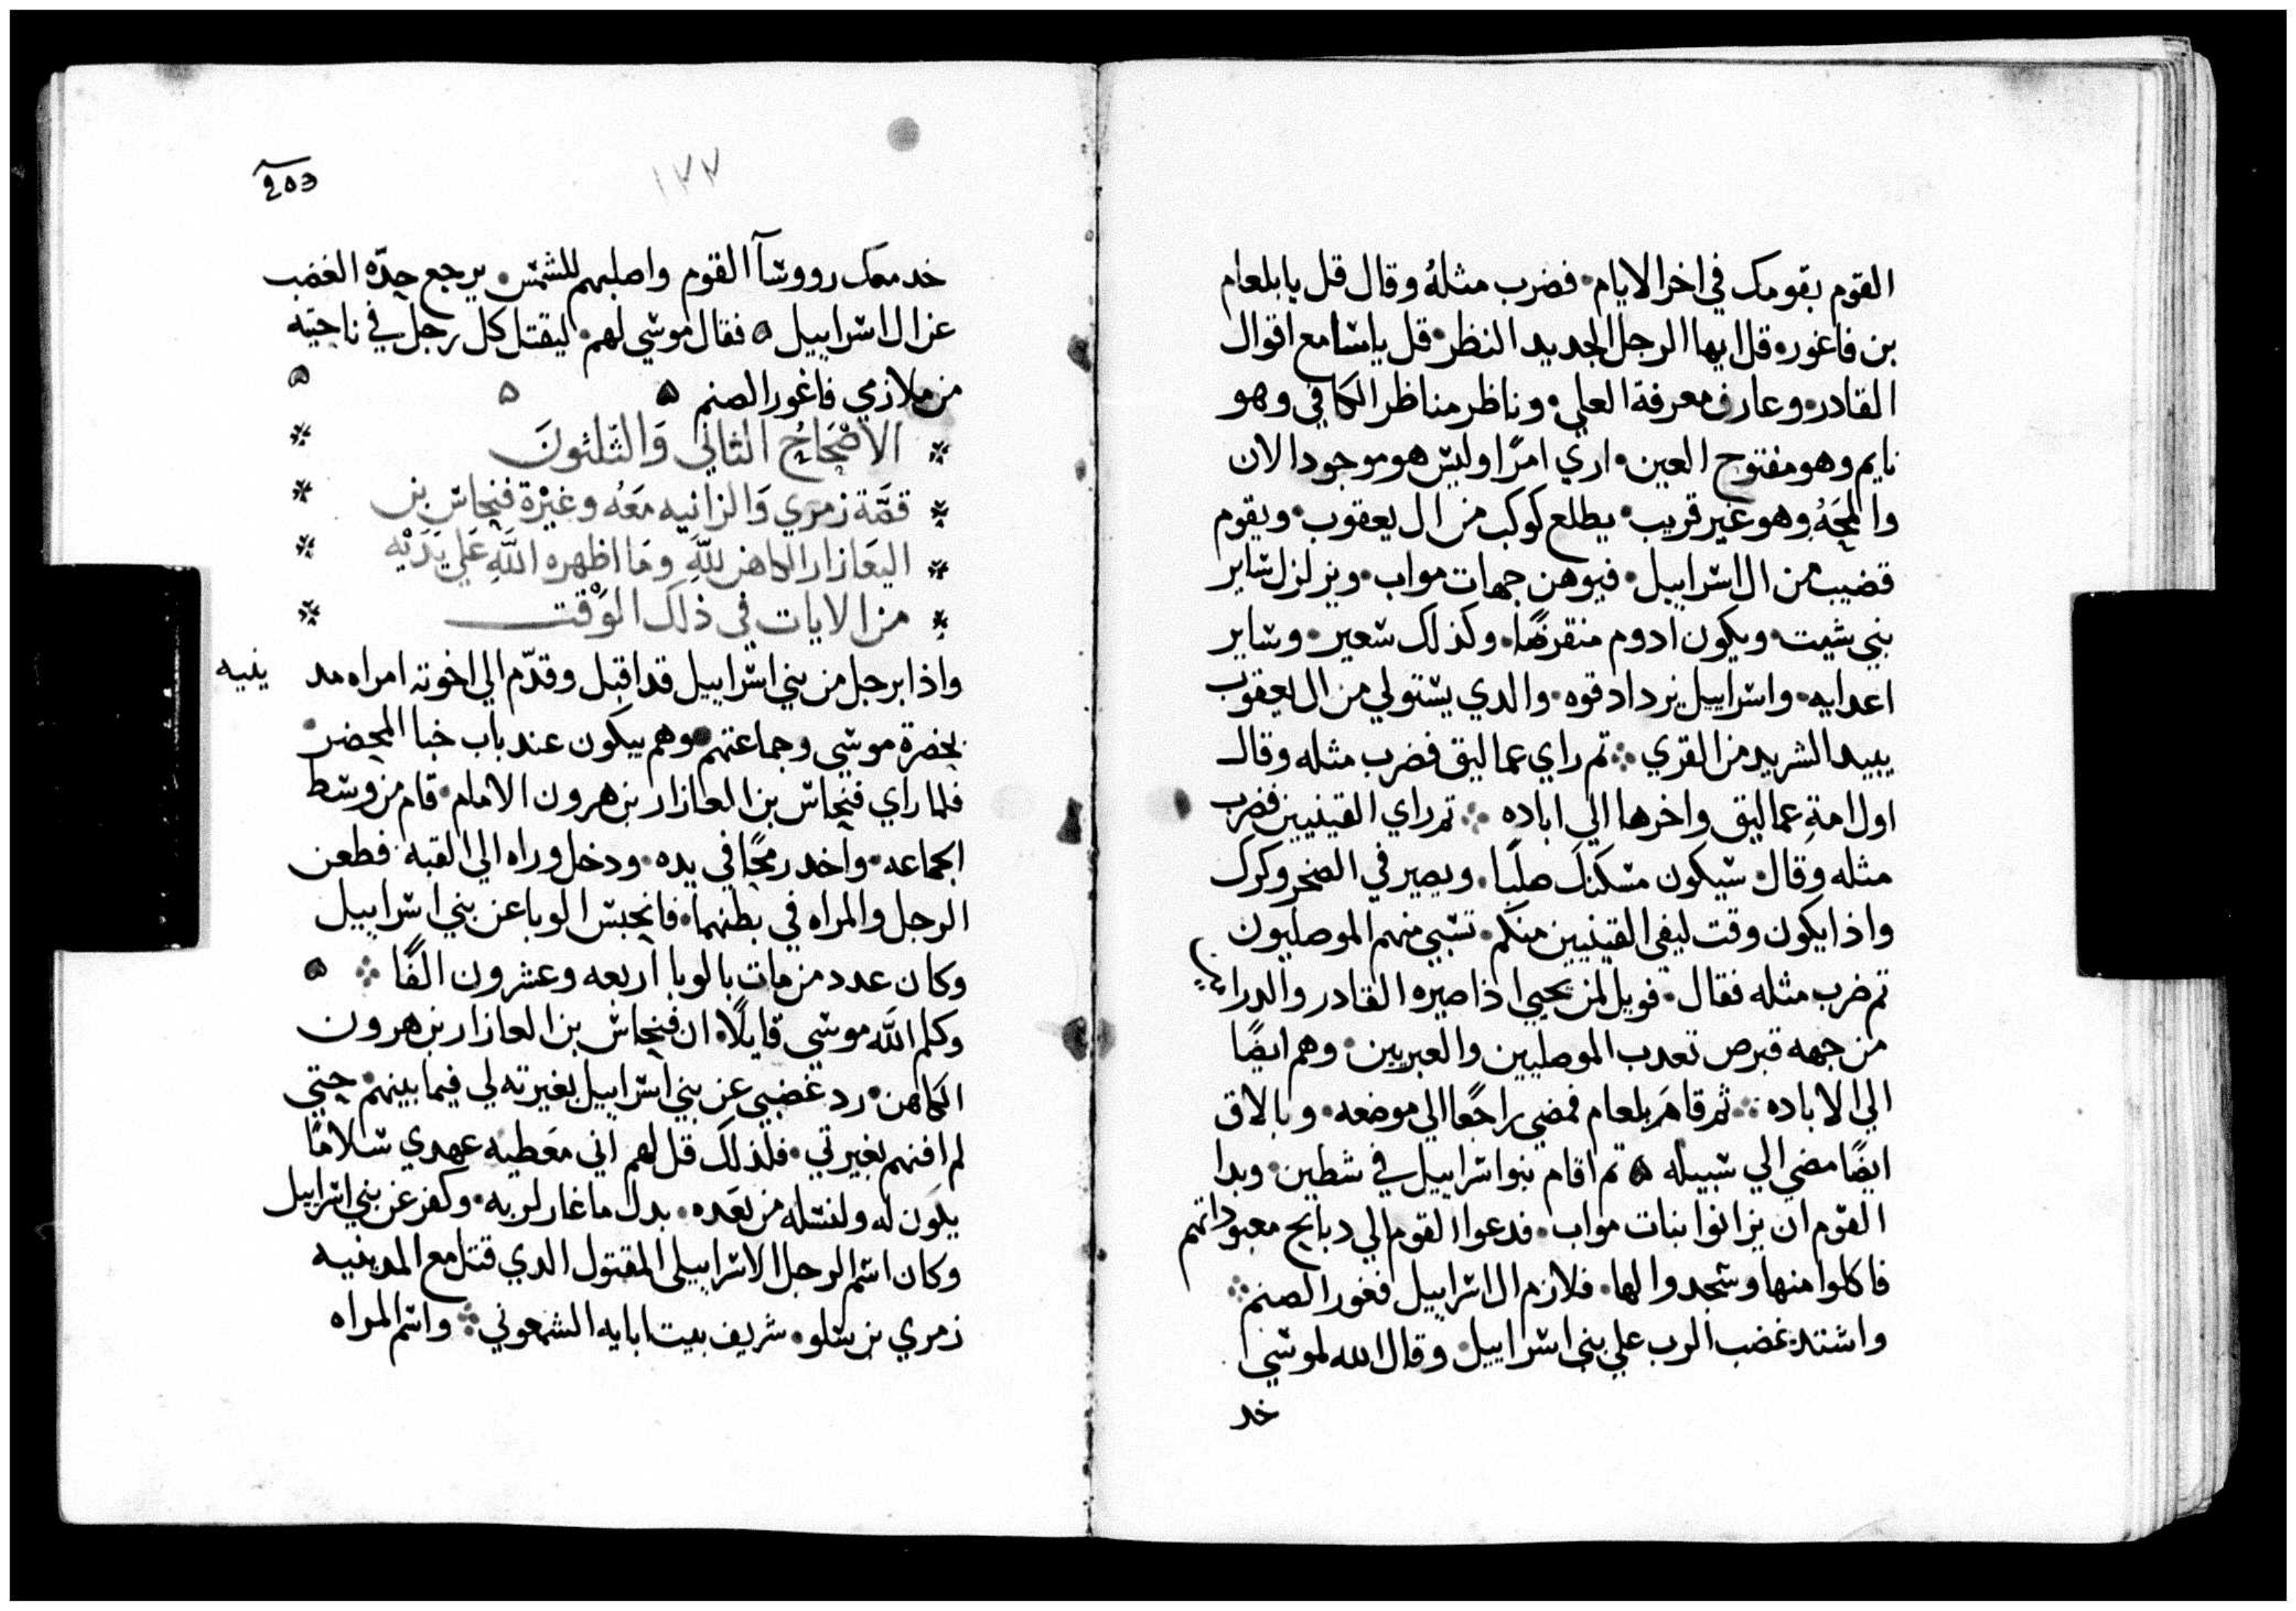 القوم بقومك في اخر الايام • فضرب مثلهُ وقال قل يا بلعام
بن فاغور • قل ايها الرجل الحديد النظر • قل يا سامع اقوال
القادر • وعارف معرفة العلي • وناظر مناظر الكافي وهو
نايم وهو مفتوح العين • اري امرًا وليس هو موجود الان
والمحَهُ وهو غير قريب • يطلع كوكب من ال يعقوب • ويقوم
قضيب من ال اسراييل • فيوهن جهات مواب • ويزلزل ساير
بني شيت • ويكون ادوم منقرضًا • وكذلك سعير • وساير
اعدايه • واسراييل يزداد قوه • والدي يستولي من ال يعقوب
يبيد الشريد من القري ܀ تم راي عماليق فضرب مثله وقال
اول امةِ عماليق واخرها الي اباده ܀ تم راي القينيين فضرب
مثله وقال • سيكون مسكنك صلبًا • ويصير في الصخر وكرك
واذا يكون وقت ليفي القينيين منكم • تسبي منهم الموصليون
تم ضرب مثله فقال • فويل لمن يحيي اذا صيره القادر والدرا
من جهه قبرص تعدب الموصليين والعبريين • وهم ايضًا
الي الاباده ܀ ثم قامَ بلعام فمضي راجعًا الي موضعه • وبالاق
ايضًا مضي الي سبيله ه تم اقام بنوا اسراييل في شطين • وبدا
القوم ان يزانوا بنات مواب • فدعوا القوم الي دبايح معبوداتهم
فاكلوا منها وسجدوا لها • فلازم ال اسراييل فغور الصنم ܀
واشتد غضب الرب علي بني اسراييل • وقال الله لموسي
خد
203
١٧٧
خد معك رووسآ القوم واصلبهم للشمس • يرجع حدّه الغضب
عن ال اسراييل ه فقال موسي لهم • ليقتل كل رجل في ناحيته
من ملازمي فاغور الصنم ه ه ه
الاصْحَاحُ الثاني وَالثلثونَ
قصَّة زمري وَالزانيه مَعَه وغيْرة فنحاس بن
اليعَازار الكاهن للهِ ومَا اظهره اللهِ عَلي يَدَيْه
من الايات في ذلك الوَقت
واذا برجل من بني اسراييل قد اقبل وقدّم الي اخوته امراه مد ينيه
بحضرة موسي وجماعتهم وهم يبكون عند باب خبا المحضر •
فلما راي فنحاس بن العازار بن هرون الامام • قام من وسط
الجماعه • واخد رمحًا في يده • ودخل وراه الي القبه فطعن
الرجل والمراه في بطنهما • فانحبس الوبا عن بني اسراييل
وكان عدد من مات بالوبا اربعه وعشرون الفًا ܀ ه
وكلم الله موسي قايلًا • ان فنحاس بن العازار بن هرون
الكاهن • رد غضبي عن بني اسراييل بغيرته لي فيما بينهم • حتي
لم افنهم بغيرتي • فلذلك قل لهم اني معَطيه عهدي سلامًا
يكَون له ولنسله من بعَده • بدل ما غار لربه • وكفر عن بني اسراييل
وكان اسم الرجل الاسراييلي المقتول الدي قتل مع المدينيه
زمري بن سلو • شريف بيت ابايه الشمعوني ܀ واسم المراه